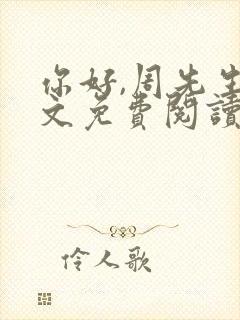 你好,周先生
文免費閱讀
伶人歌